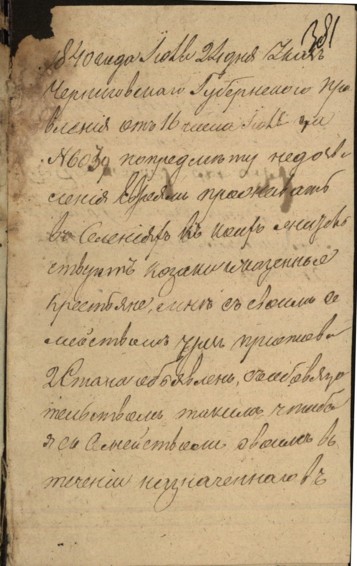 381
1840 года Юля 24 дня Указъ
Черниговскаго Губернского пра
вления отъ 16 числа
№ 6030 попредмету недозво
ления евреям проживать
въ Селенияхъ въ коихъ жительс
ствуютъ козаки и казенные
крестьяне, мне съ своимъ се
мействомъ чрез пристава
2 Стана объявленъ, съ обовяза
тельствомъ такимъ, чтобъ
я съ Семействомъ своимъ въ
течении назначенного въ